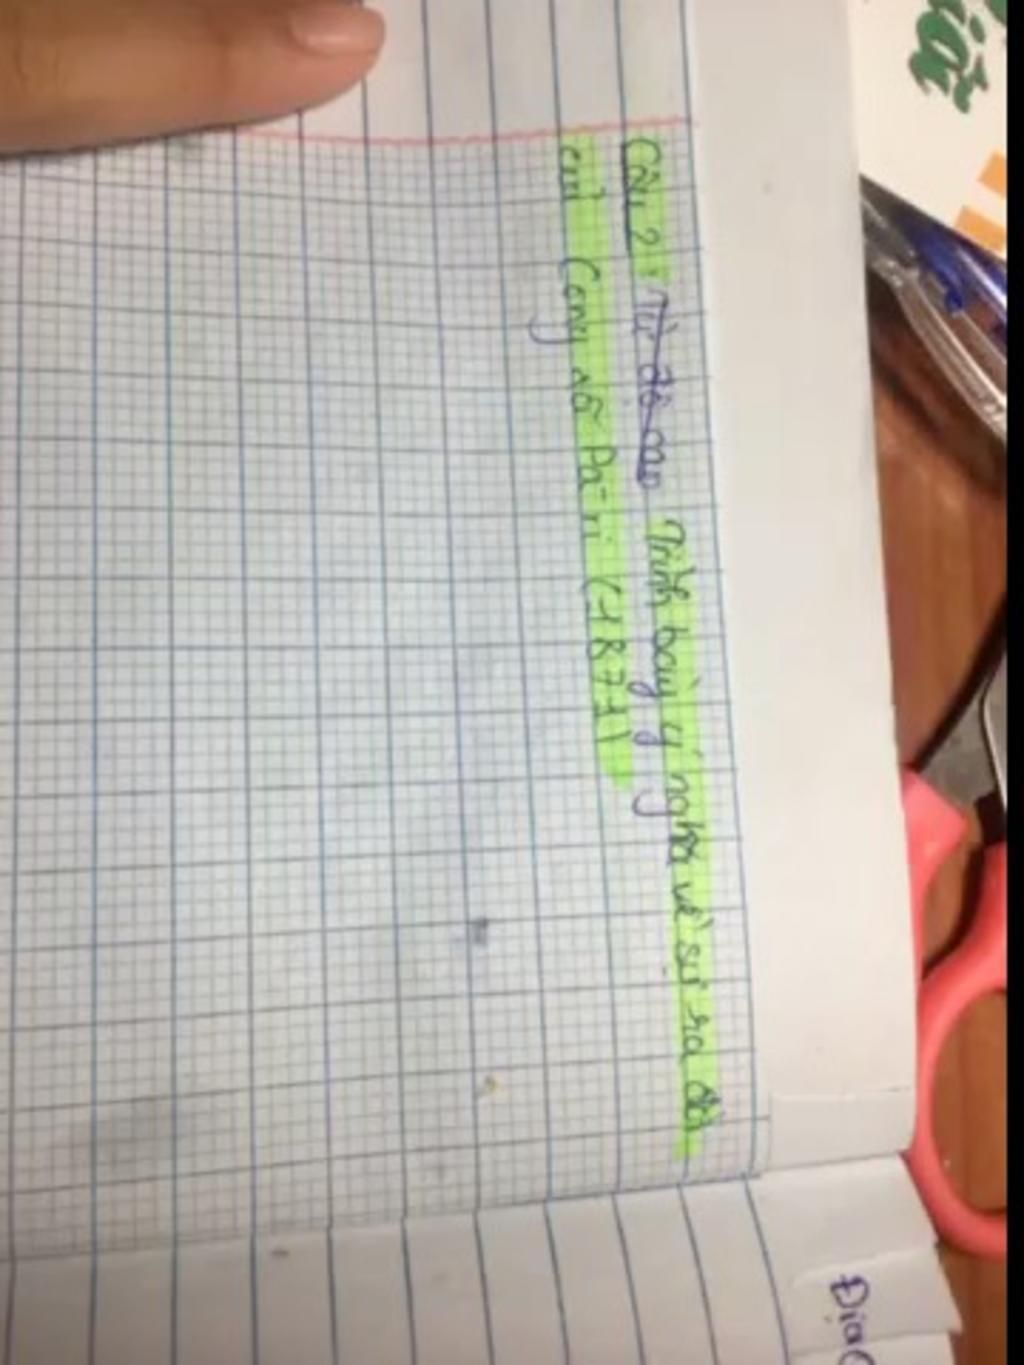 Câu 2: Từ đó cao Trình bày ý nghĩa về sự ra đời
của Công xã Pa-ri (1871)
Địa